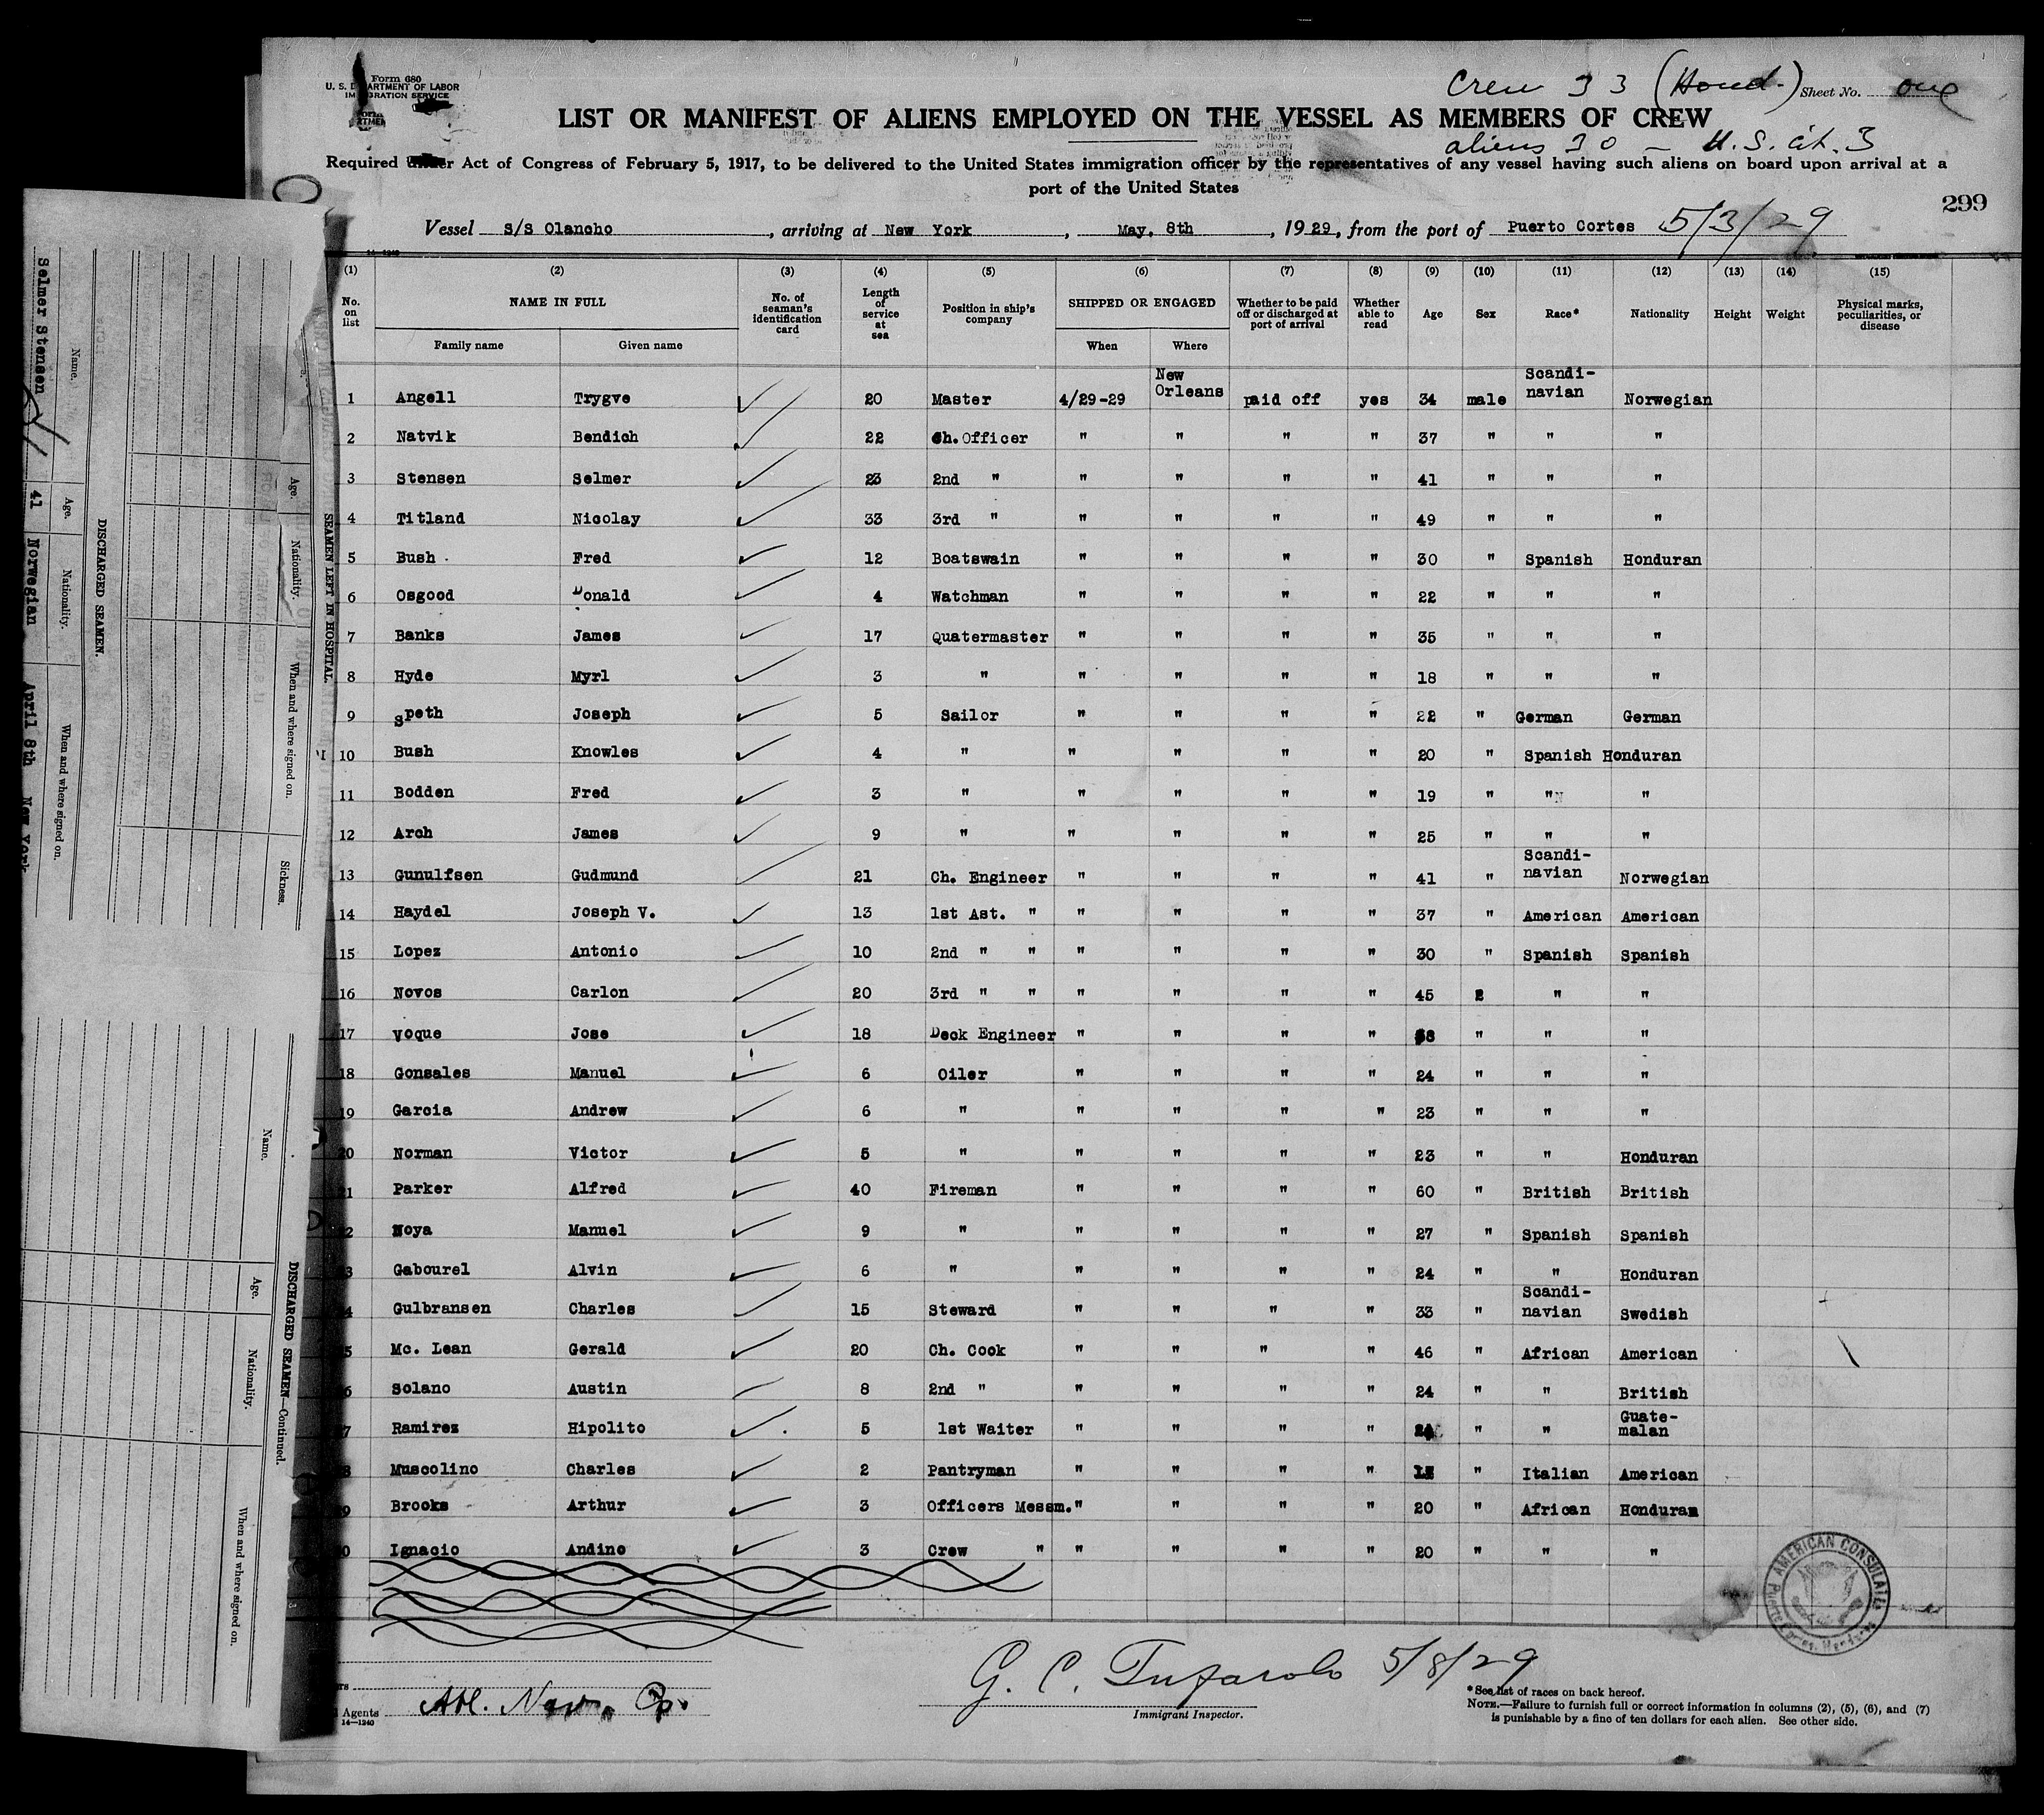 Form 680
U. S. DEPARTMENT OF LABOR
IMMIGRATION SERVICE
Crew 33 (Hond.) Sheet No. one
LIST OR MANIFEST OF ALIENS EMPLOYED ON THE VESSEL AS MEMBERS OF CREW
aliens 30 — U.S. cit. 3
Required under Act of Congress of February 5, 1917, to be delivered to the United States immigration officer by the representatives of any vessel having such aliens on board upon arrival at a
port of the United States
299
Vessel S/S Olancho, arriving at New York, May, 8th, 1929, from the port of Puerto Cortes 5/3/29
14—1240
(1) (2) (3) (4) (5) (6) (7) (8) (9) (10) (11) (12) (13) (14) (15)
No. on list NAME IN FULL Family name Given name No. of seaman's identification card Length of service at sea Position in ship's company SHIPPED OR ENGAGED When Where Whether to be paid off or discharged at port of arrival Whether able to read Age Sex Race* Nationality Height Weight Physical marks, peculiarities, or disease
1 Angell Trygve 20 Master 4/29-29 New Orleans paid off yes 34 male Scandi-navian Norwegian
2 Natvik Bendich 22 Ch.Officer " " " " 37 " " "
3 Stensen Selmer 23 2nd " " " " " 41 " " "
4 Titland Nicolay 33 3rd " " " " " 49 " " "
5 Bush Fred 12 Boatswain " " " " 30 " Spanish Honduran
6 Osgood Donald 4 Watchman " " " " 22 " " "
7 Banks James 17 Quatermaster " " " " 35 " " "
8 Hyde Myrl 3 " " " " " 18 " " "
9 Speth Joseph 5 Sailor " " " " 22 " German German
10 Bush Knowles 4 " " " " " 20 " Spanish Honduran
11 Bodden Fred 3 " " " " " 19 " " "
12 Arch James 9 " " " " " 25 " " "
13 Gunulfsen Gudmund 21 Ch. Engineer " " " " 41 " Scandi-navian Norwegian
14 Haydel Joseph V. 13 1st Ast. " " " " " 37 " American American
15 Lopez Antonio 10 2nd " " " " " " 30 " Spanish Spanish
16 Novos Carlon 20 3rd " " " " " " 45 2 " "
17 Voque Jose 18 Deck Engineer " " " " " " "
18 Gonsales Manuel 6 Oiler " " " " 24 " " "
19 Garcia Andrew 6 " " " " " 23 " " "
20 Norman Victor 5 " " " " " 23 " " Honduran
21 Parker Alfred 40 Fireman " " " " 60 " British British
2 Noya Manuel 9 " " " " " 27 " Spanish Spanish
3 Gabourel Alvin 6 " " " " " 24 " " Honduran
4 Gulbransen Charles 15 Steward " " " " 33 " Scandi-navian Swedish
5 Mc. Lean Gerald 20 Ch. Cook " " " " 46 " African American
6 Solano Austin 8 2nd " " " " " 24 " " British
7 Ramirez Hipolito 5 1st Waiter " " " " " " Guate-malan
8 Muscolino Charles 2 Pantryman " " " " " Italian American
9 Brooks Arthur 3 Officers Messm. " " " " 20 " African Honduran
0 Ignacio Andino 3 Crew " " " " " 20 " " "
AMERICAN CONSULATE
Puerto Cortes, Honduras
G. C. Tufarolo 5/8/29
Immigrant Inspector.
Agents Atl. Nav. Co.
14—1240
*See list of races on back hereof.
NOTE.—Failure to furnish full or correct information in columns (2), (5), (6), and (7)
is punishable by a fine of ten dollars for each alien. See other side.
SEAMEN LEFT IN HOSPITAL.
Age. Nationality. When and where signed on. Sickness.
DISCHARGED SEAMEN.
Name. Age. Nationality. When and where signed on.
Selmer Stensen 41 Norwegian April 8th New York
DISCHARGED SEAMEN—Continued.
Name. Age. Nationality. When and where signed on.